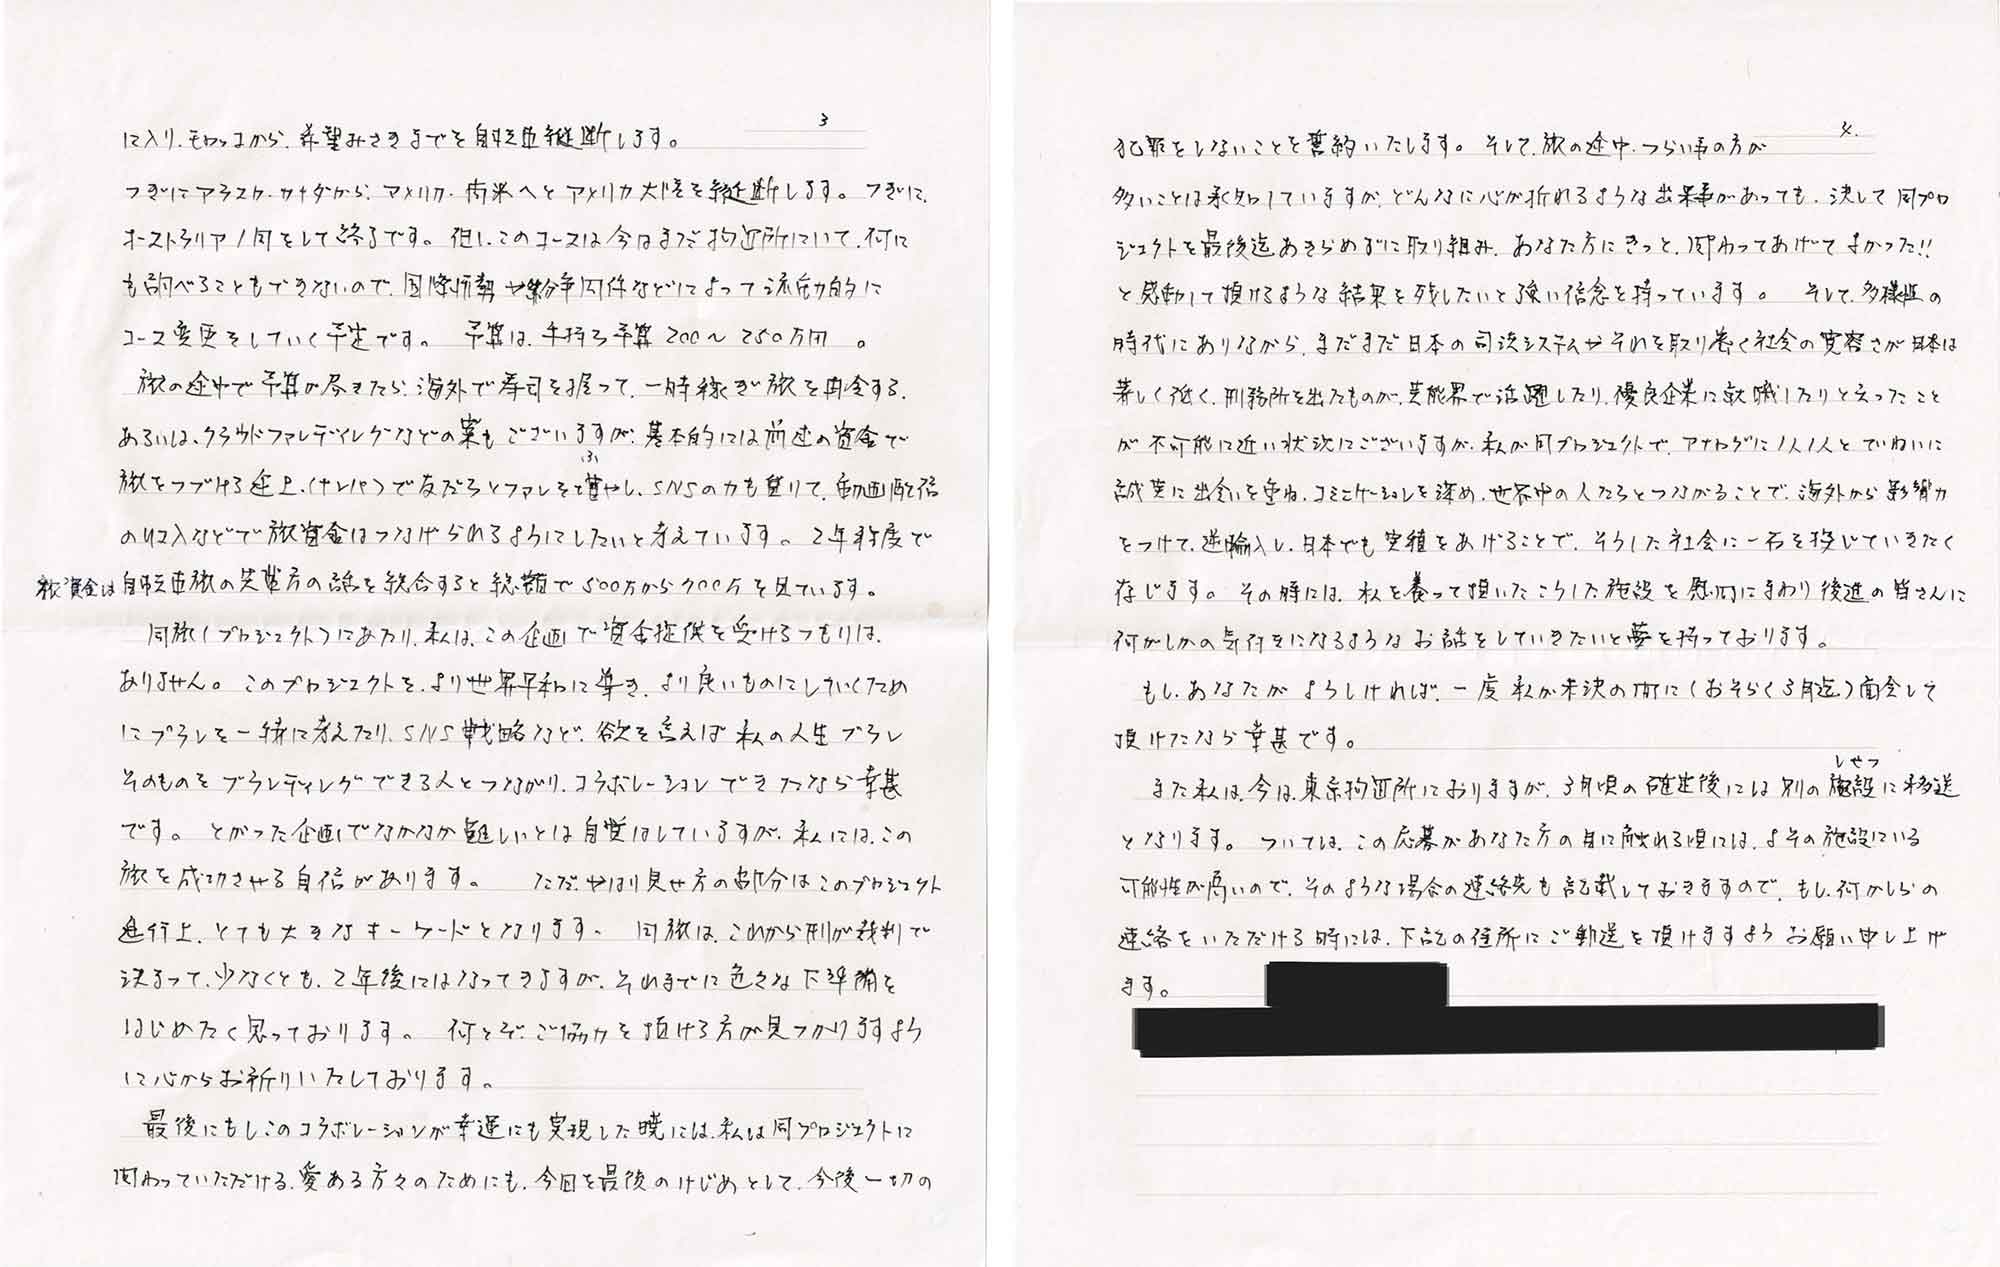 3
に入り、モロッコから、希望みさきまでを自転車縦断します。
つぎにアラスカ・カナダから、アメリカ・南米へとアメリカ大陸を縦断します。つぎに、
オーストラリア1周をして終了です。但し、このコースは今はまだ拘置所にいて、何に
も調べることもできないので、国際情勢や紛争間係などによって流動的に
コース変更をしていく予定です。 予算は、手持ち予算200〜250万円。
旅の途中で予算が尽きたら、海外で寿司を握って、一時稼ぎ旅を再会する、
あるいは、クラウドファンディングなどの案もございますが、基本的には前述の資金で
旅をつづける途上、(ナンパ)で友だちとファンを増やし、SNSの力も借りて、動画配信
ふ
の収入などで旅資金はつなげられるようにしたいと考えています。2年程度で
旅資金は自転車旅の先輩方の話を総合すると総額で500万から700万を見ています。
同旅(プロジェクト)にあたり、私は、この企画で資金提供を受けるつもりは、
ありません。このプロジェクトを、より世界平和に導き、より良いものにしていくため
にプランを一緒に考えたり、SNS戦略など、欲を言えば私の人生プラン
そのものをブランディングできる人とつながり、コラボレーションできたなら幸甚
です。とがった企画でなかなか難しいとは自覚はしていますが、私には、この
旅を成功させる自信があります。 ただ、やはり見せ方の部分はこのプロジェクト
進行上、とても大きなキーワードとなります。 同旅は、これから刑が裁判で
決まって、少なくとも、2年後にはなってきますが、それまでに色々な下準備を
はじめたく思っております。 何とぞ、ご協力を頂ける方が見つかりますよう
に心からお祈りいたしております。
最後にもしこのコラボレーションが幸運にも実現した暁には、私は同プロジェクトに
関わっていただける、愛ある方々のためにも、今回を最後のけじめとして、今後一切の
4.
犯罪をしないことを誓約いたします。そして、旅の途中、つらい事の方が
多いことは承知していますが、どんなに心が折れるような出来事があっても、決して同プロ
ジェクトを最後迄あきらめずに取り組み、あなた方にきっと、関わってあげてよかった!!
と感動して頂けるような結果を残したいと強い信念を持っています。 そして、多様性の
時代にありながら、まだまだ日本の司法システムやそれを取り巻く社会の寛容さが日本は
著しく低く、刑務所を出たものが、芸能界で活躍したり、優良企業に就職したりと云ったこと
が不可能に近い状況にございますが、私が同プロジェクトで、アナログに1人1人とていねいに
誠実に出会いを重ね、コミュニケーションを深め、世界中の人たちとつながることで、海外から影響力
をつけて、逆輸入し、日本でも実績をあげることで、そうした社会に一石を投じていきたく
存じます。その時には、私を養って頂いたこうした施設を慰問にまわり後進の皆さんに
何がしかの気付きになるようなお話をしていきたいと夢を持っております。
もし、あなたがよろしければ、一度私が未決の間に(おそらく3月迄)面会して
頂けたなら幸甚です。
しせつ
また私は、今は、東京拘置所におりますが、3月頃の確定後には別の施設に移送
となります。ついては、この応募があなた方の目に触れる頃には、よその施設にいる
可能性が高いので、そのような場合の連絡先も記載しておきますので、もし、何かしらの
連絡をいただける時には、下記の住所にご郵送を頂けますようお願い申し上げ
ます。